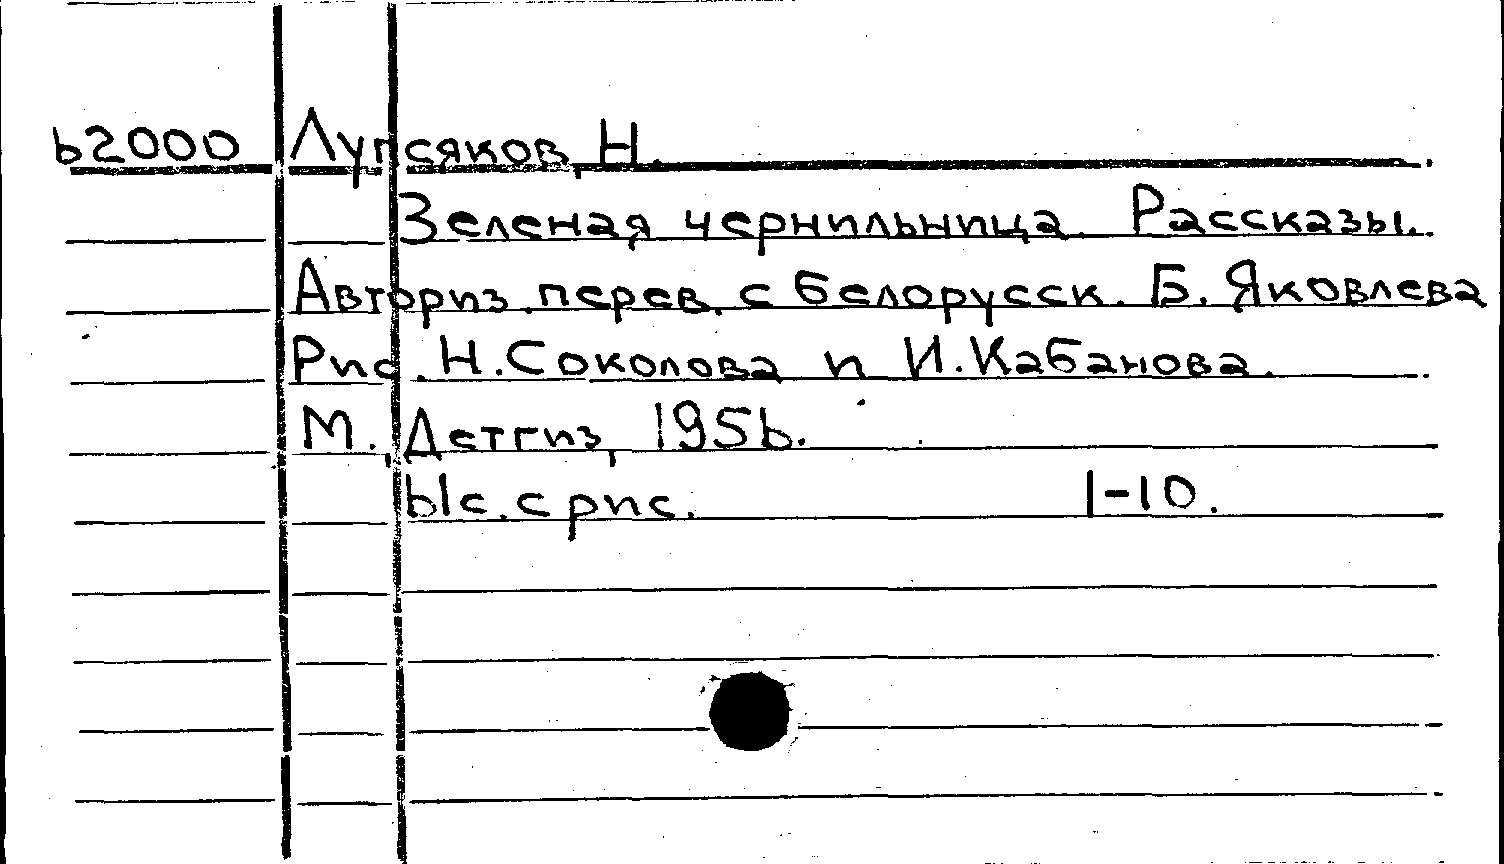 62000 Лупсяков, Н.
Зеленая чернильница. Рассказы.
Авториз. перев. с белорусск. Б. Яковлева
Рис. Н. Соколова и И. Кабанова.
М., Детгиз, 1956.
61с. с рис. 1-10.